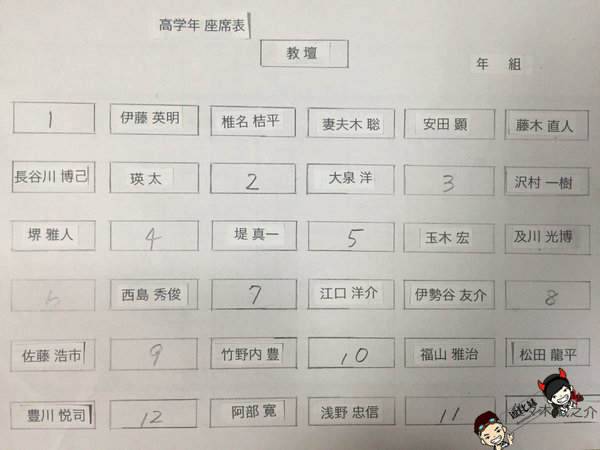 高学年 座席表
教壇
年 組
1 伊藤 英明 椎名 桔平 妻夫木 聡 安田 顕 藤木 直人
長谷川 博己 瑛太 2 大泉 洋 3 沢村 一樹
堺 雅人 4 堤 真一 5 玉木 宏 及川 光博
6 西島 秀俊 7 江口 洋介 伊勢谷 友介 8
佐藤 浩市 9 竹野内 豊 10 福山 雅治 松田 龍平
豊川 悦司 12 阿部 寛 浅野 忠信 11 木 之介